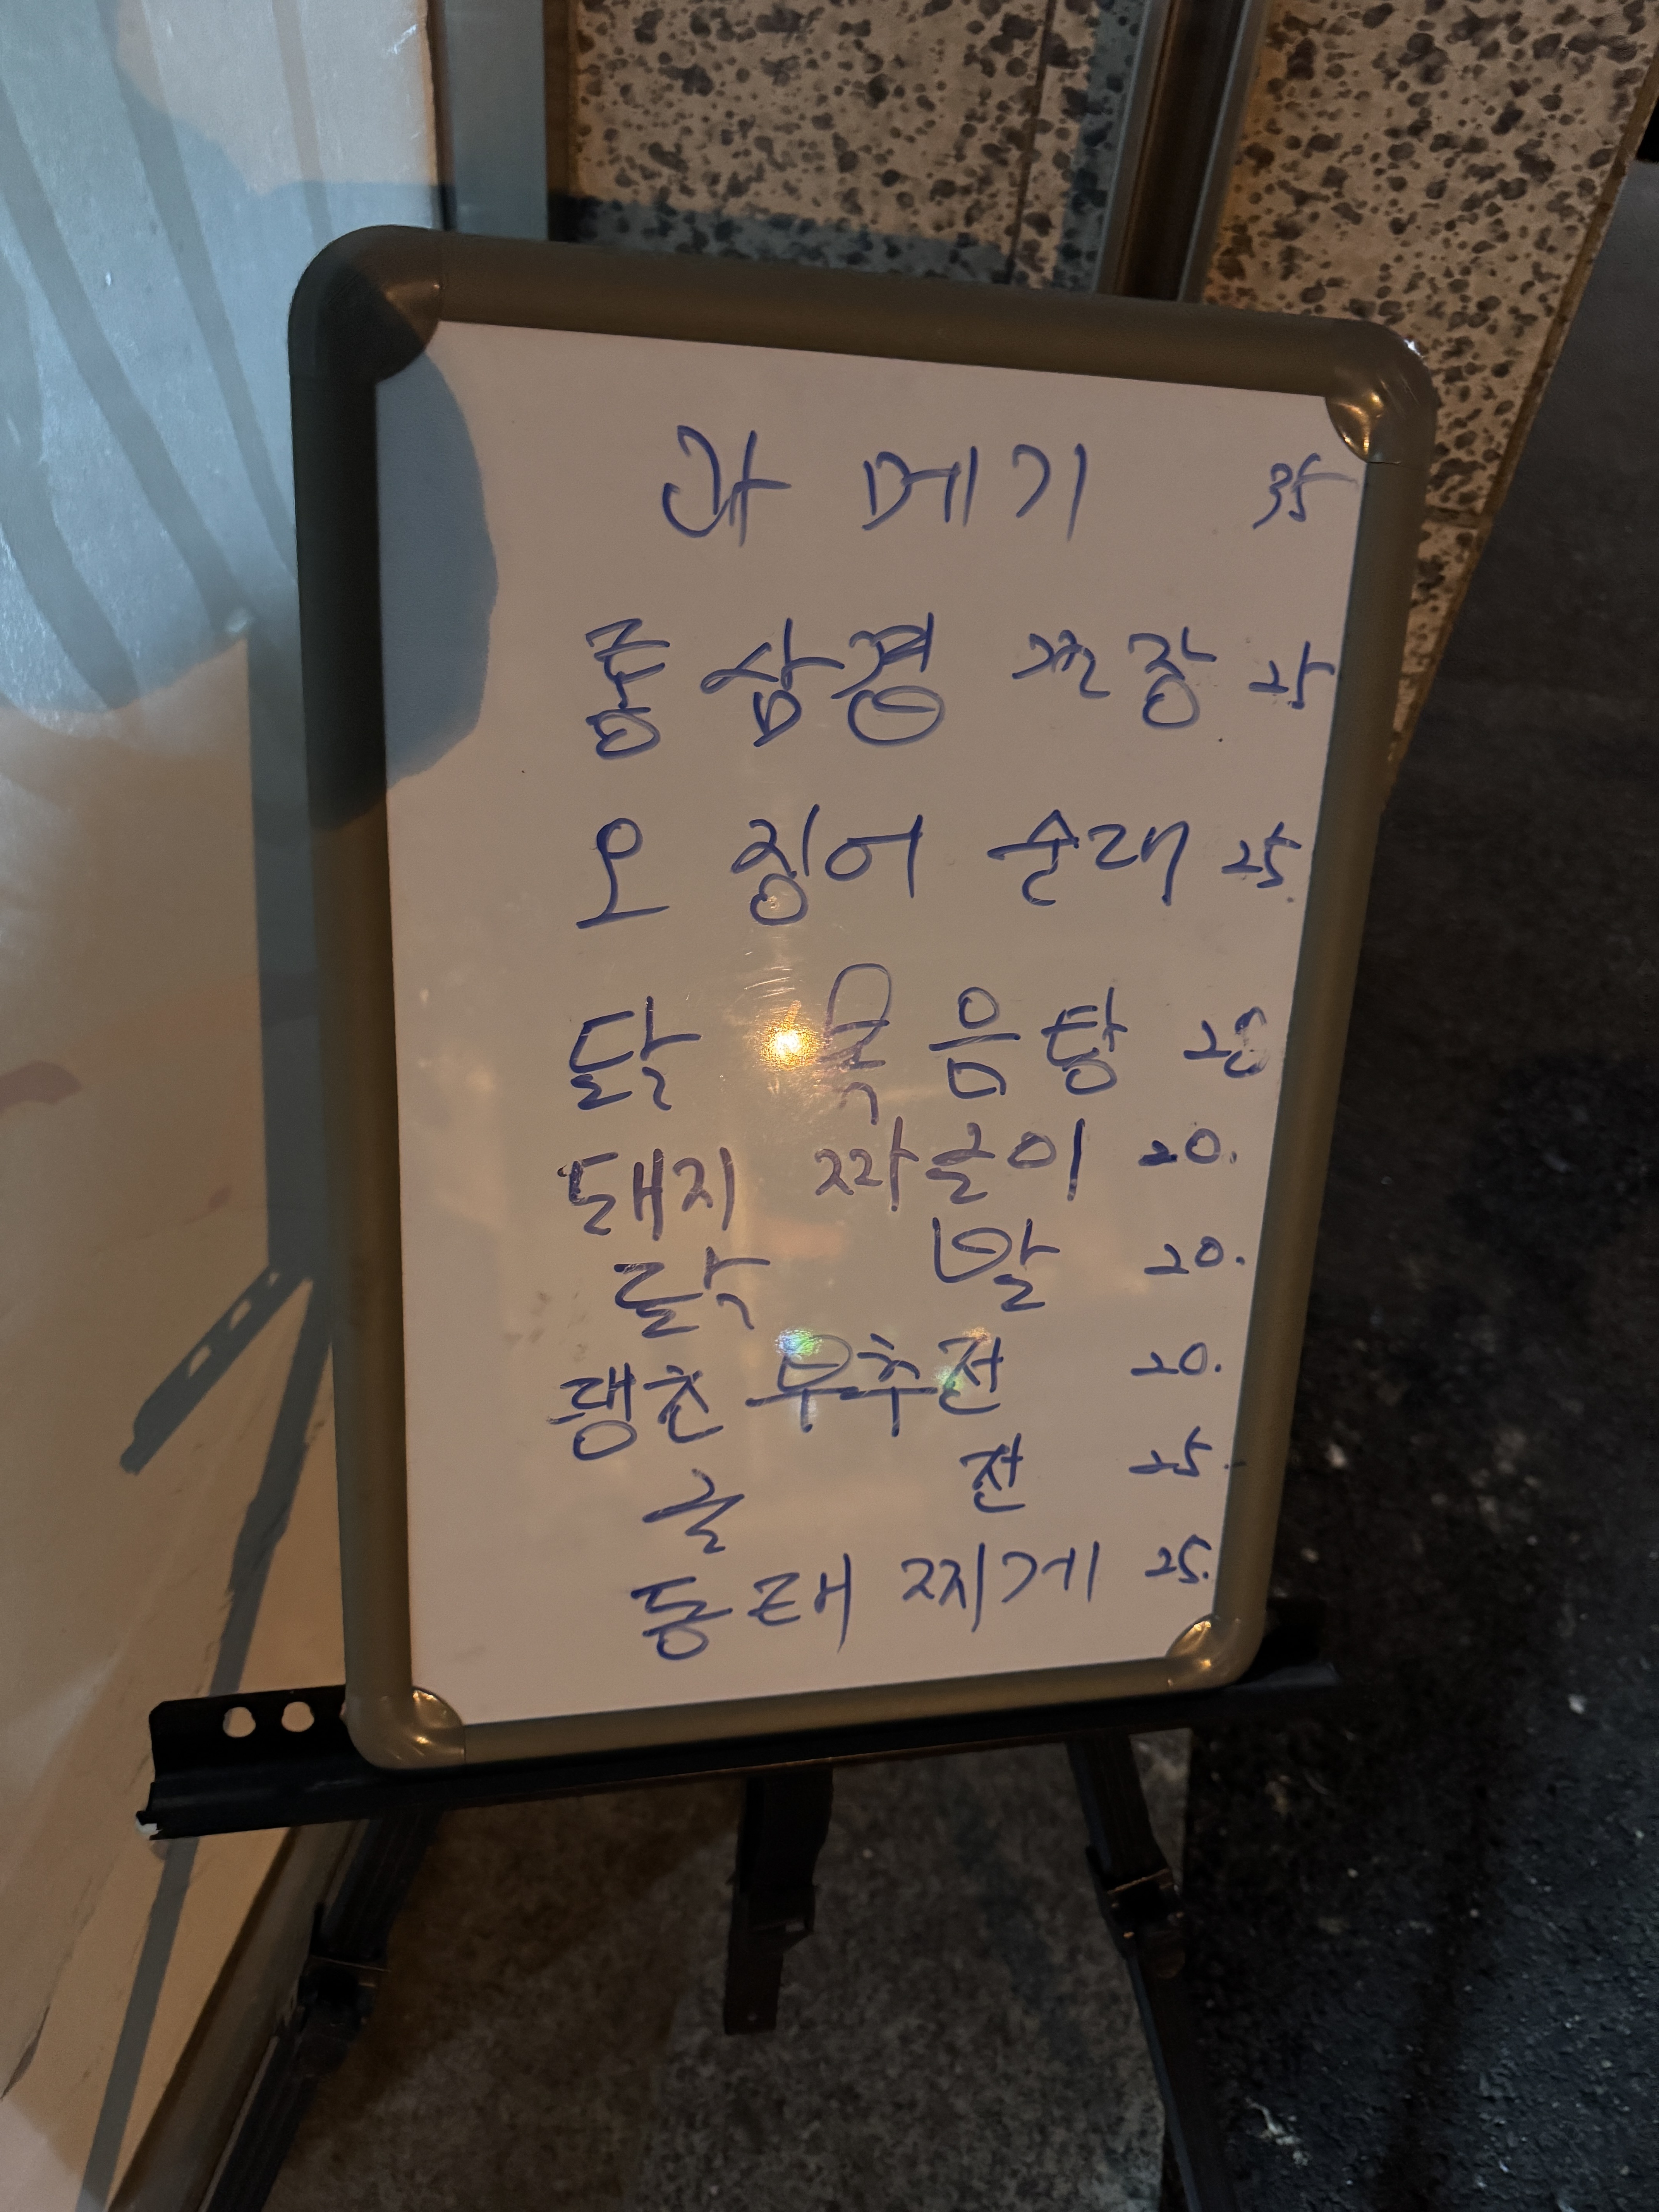 과메기 35
통삼겹 구장 25
오징어 순대 25.
닭 볶음탕 25
돼지 짜글이 20.
닭 발 20.
땡초 부추전 20.
굴 전 25.
동태 찌게 25.